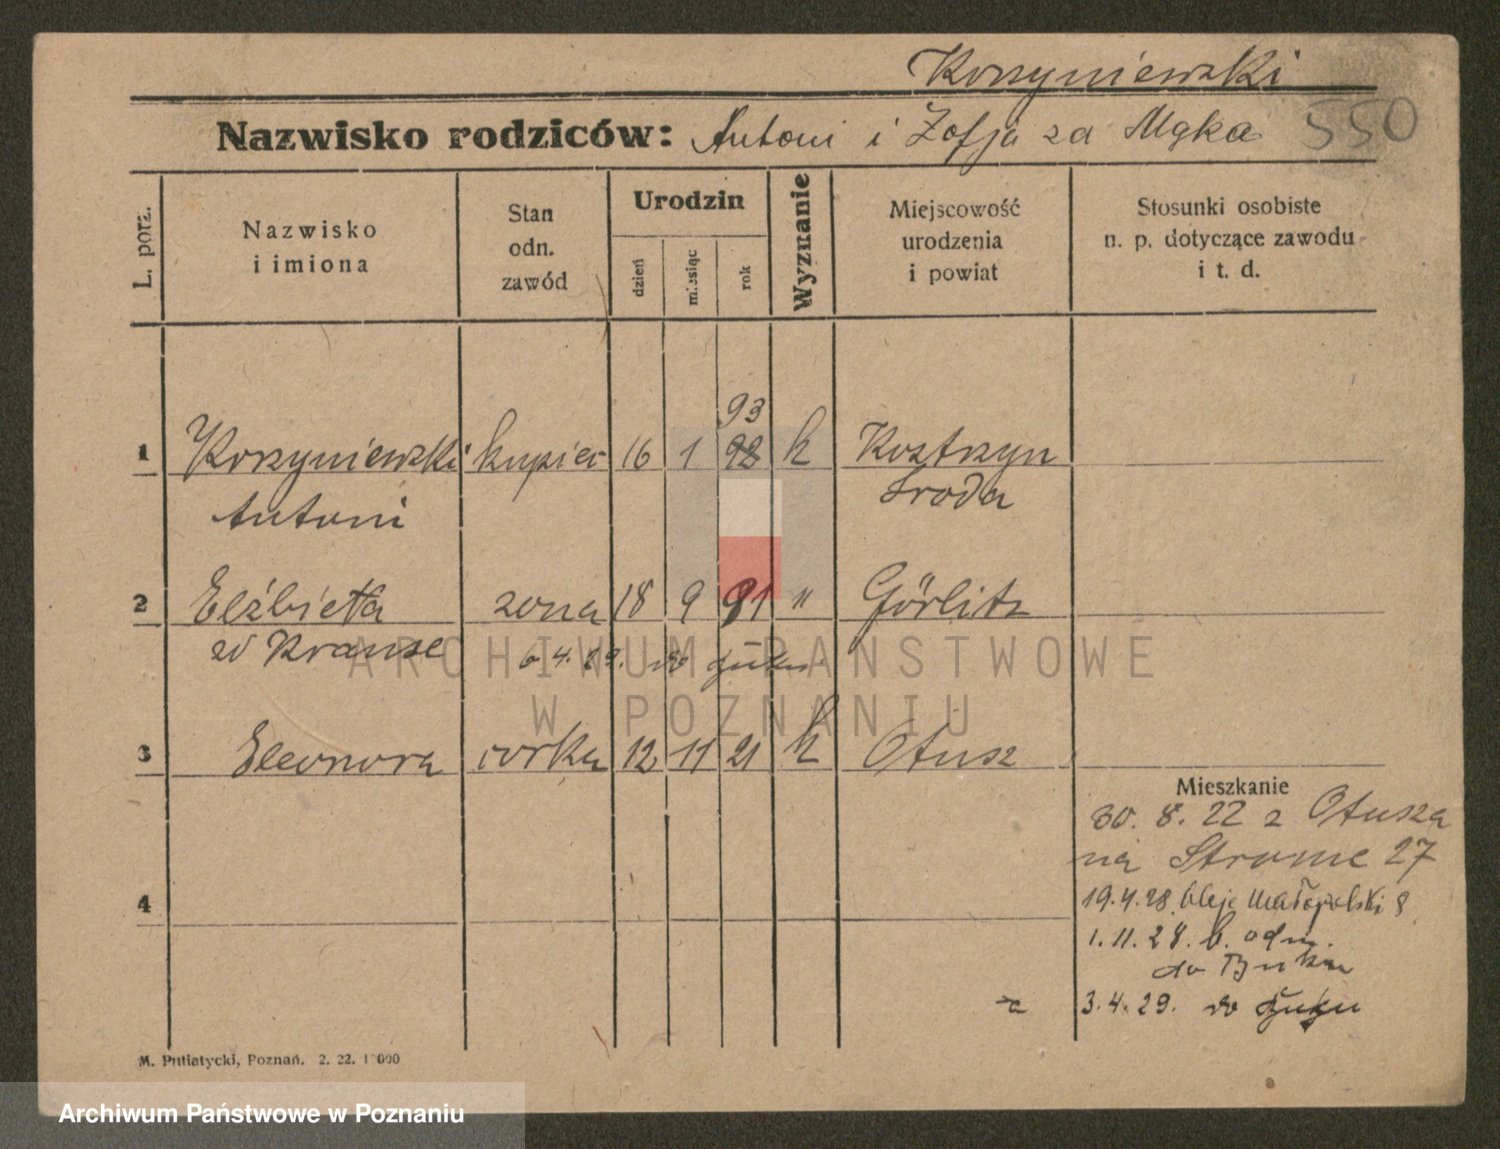 Korzyniewski
Nazwisko rodziców: Antoni i Zofja za Mąka
550
L. porz.
Nazwisko i imiona
Stan odn. zawód
Urodzin
dzień miesiąc rok
Wyznanie
Miejscowość urodzenia i powiat
Stosunki osobiste n. p. dotyczące zawodu i t. d.
93
1 Korzyniewski kupiec 16 1 98 k Kostrzyn
Antoni Środa
2 Elżbieta żona 18 9 91 " Görlitz
zd Krause 6.4.29. do
3 Eleonora córka 12 11 21 k Otusz
Mieszkanie
30. 8. 22 z Otusza
na Strome 27
4
19.4.28. Aleje Małopolski 8
1. 11. 28. b. odm.
do Buku
3.4.29. do
M. Putiatycki, Poznań. 2. 22.
ARCHIWUM PAŃSTWOWE
W POZNANIU
Archiwum Państwowe w Poznaniu